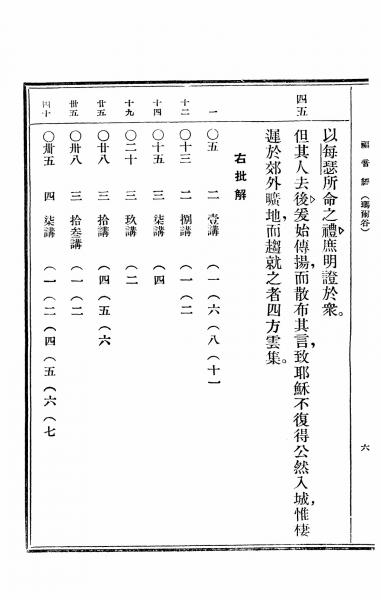 福音經（瑪爾谷） 六
以每瑟所命之禮，庶明證於衆。
四五 但其人去後，爰始傳揚，而散布其言，致耶穌不復得公然入城，惟棲
遲於郊外曠地，而趨就之者四方雲集。
右批解
一 〇五 二 壹講 （一（六（八（十一
十二 〇十三 二 捌講 （一（二
十四 〇十五 三 柒講 （四
十九 〇二十 三 玖講 （二
廿五 〇廿八 三 拾講 （四（五（六
卅五 〇卅八 三 拾叁講 （一（二
四十 〇卌五 四 柒講 （一（二（四（五（六（七